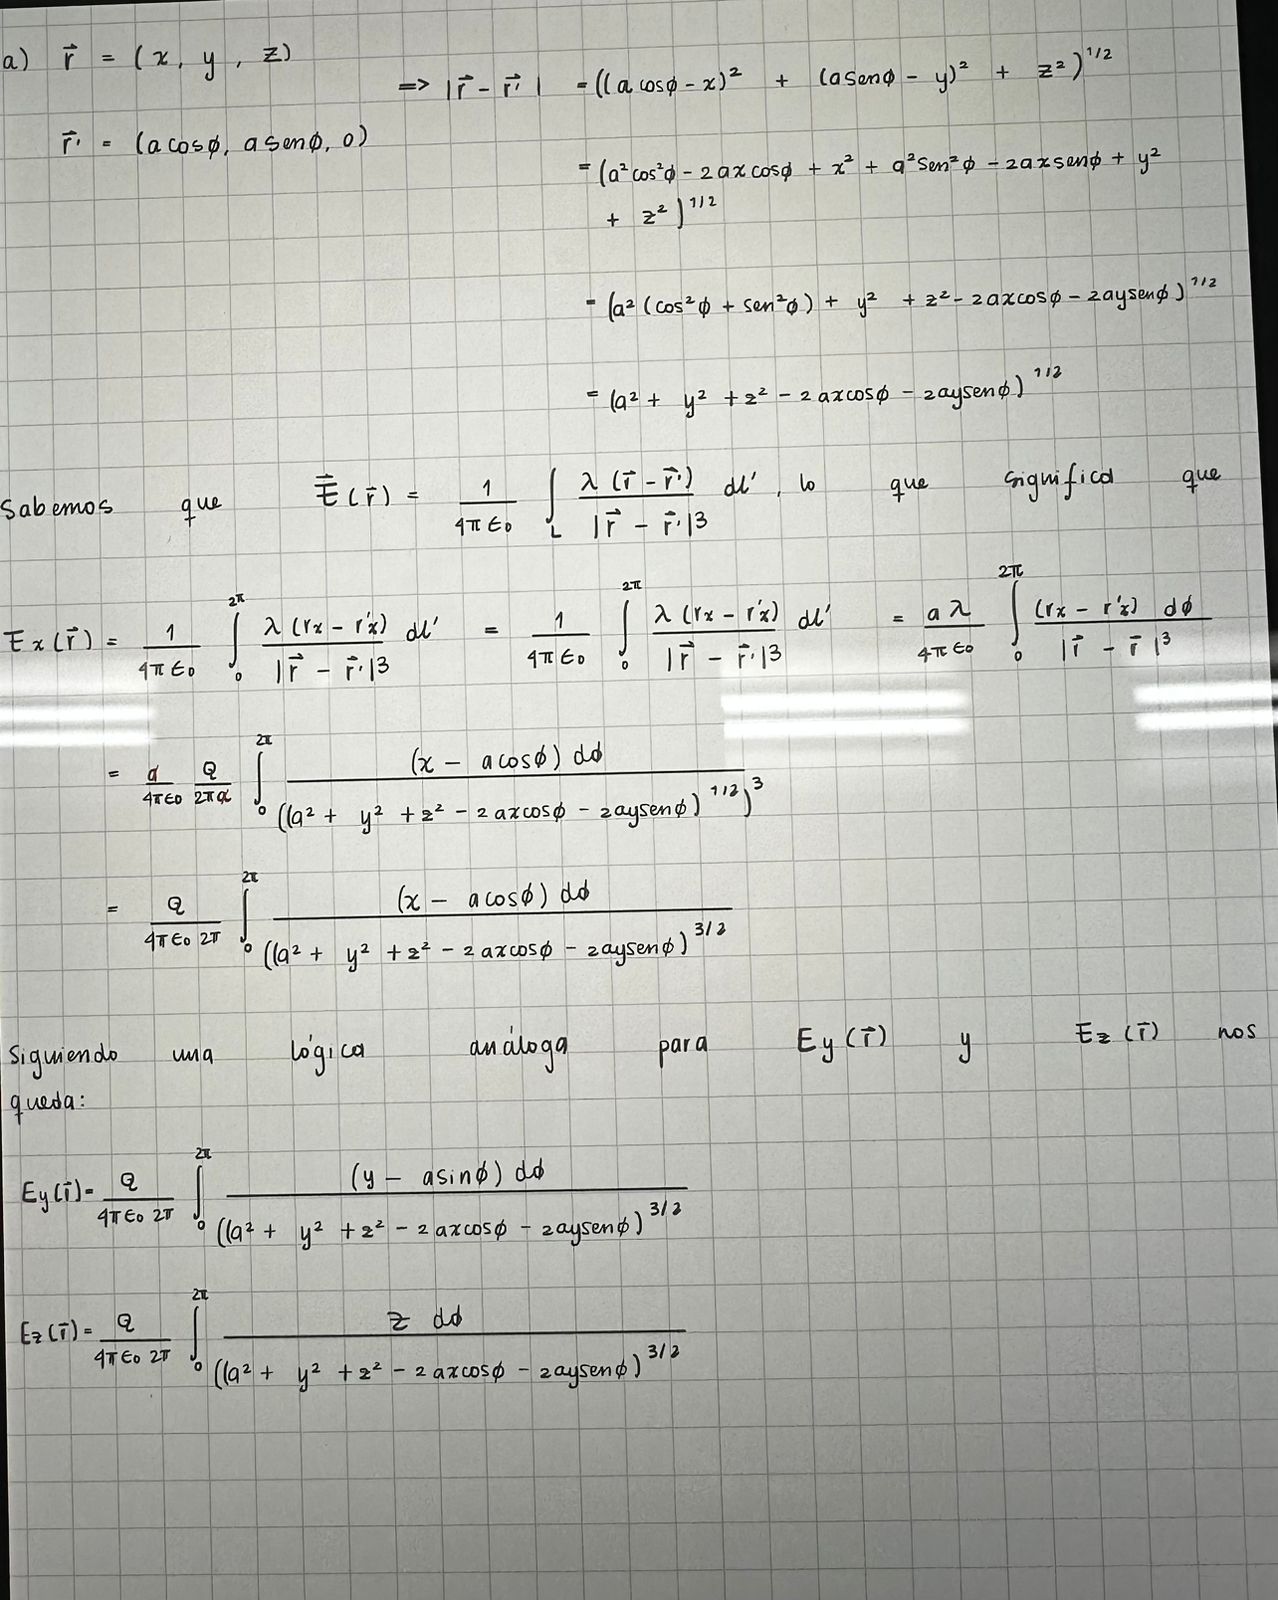 a) r⃗ = (x, y, z)
=> |r⃗ - r⃗'| = ((a cosϕ - x)² + (a senϕ - y)² + z²)^1/2
r⃗' = (a cosϕ, a senϕ, 0)
= (a²cos²ϕ - 2axcosϕ + x² + a²sen²ϕ - 2axsenϕ + y²
+ z²)^1/2
= (a²(cos²ϕ + sen²ϕ) + y² + z² - 2axcosϕ - 2aysenϕ)^1/2
= (a² + y² + z² - 2axcosϕ - 2aysenϕ)^1/2
Sabemos que E⃗(r⃗) = 1/4πϵ₀ ∫_L λ(r⃗ - r⃗')/|r⃗ - r⃗'|³ dl', lo que significa que
Ex(r⃗) = 1/4πϵ₀ ∫₀^2π λ(rx - r'x)/|r⃗ - r⃗'|³ dl' = 1/4πϵ₀ ∫₀^2π λ(rx - r'x)/|r⃗ - r⃗'|³ dl' = aλ/4πϵ₀ ∫₀^2π (rx - r'x) dϕ/|r⃗ - r⃗|³
= a/4πϵ₀ Q/2πa ∫₀^2π (x - acosϕ) dϕ/((a² + y² + z² - 2axcosϕ - 2aysenϕ)^1/2)³
= Q/4πϵ₀ 2π ∫₀^2π (x - acosϕ) dϕ/((a² + y² + z² - 2axcosϕ - 2aysenϕ)^3/2
Siguiendo una lógica análoga para Ey(r⃗) y Ez(r⃗) nos
queda:
Ey(r⃗) = Q/4πϵ₀ 2π ∫₀^2π (y - asinϕ) dϕ/((a² + y² + z² - 2axcosϕ - 2aysenϕ)^3/2
Ez(r⃗) = Q/4πϵ₀ 2π ∫₀^2π z dϕ/((a² + y² + z² - 2axcosϕ - 2aysenϕ)^3/2